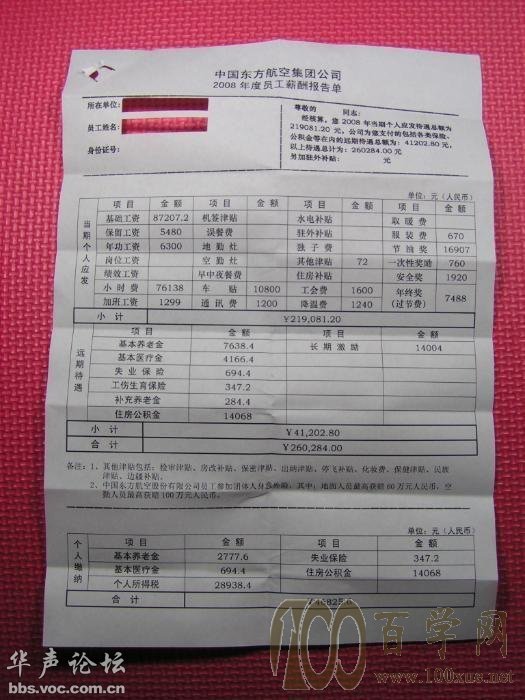 中国东方航空集团公司
2008 年度员工薪酬报告单
所在单位:
员工姓名:
身份证号:
尊敬的 同志:
经核算，您 2008 年当期个人应发待遇总额为
219081.20 元，公司为您支付的包括各类保险、
公积金等在内的远期待遇总额为: 41202.80 元，
以上待遇总计为: 260284.00 元
另加驻外补贴: 元
单位: 元（人民币）
当期个人应发
项目 金额 项目 金额 项目 金额 项目 金额
基础工资 87207.2 机签津贴 水电补贴 取暖费
保留工资 5480 误餐费 驻外补贴 服装费 670
年功工资 6300 地勤灶 独子费 节油奖 16907
岗位工资 空勤灶 其他津贴 72 一次性奖励 760
绩效工资 早中夜餐费 住房补贴 安全奖 1920
小时费 76138 车贴 10800 工会费 1600 年终奖（过节费） 7488
加班工资 1299 通讯费 1200 降温费 1240
小计 ¥219,081.20
远期待遇
项目 金额 项目 金额
基本养老金 7638.4 长期激励 14004
基本医疗金 4166.4
失业保险 694.4
工伤生育保险 347.2
补充养老金 284.4
住房公积金 14068
小计 ¥41,202.80
合计 ¥260,284.00
备注: 1、其他津贴包括: 检审津贴、房改补贴、保密津贴、出纳津贴、停飞补贴、化妆费、保健津贴、民族
津贴、边疆补贴。
2、中国东方航空股份有限公司员工参加团体人身保险，其中: 地面人员最高获赔 60 万元人民币，空
勤人员最高获赔 100 万元人民币。
单位: 元（人民币）
个人缴纳
项目 金额 项目 金额
基本养老金 2777.6 失业保险 347.2
基本医疗金 694.4 住房公积金 14068
个人所得税 28938.4
合计
华声论坛
bbs.voc.com.cn
100百学网
www.100xue.net